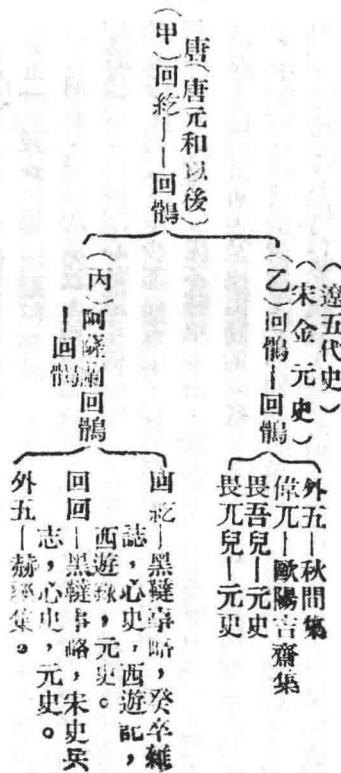 唐（唐元和以後）
（甲）回紇——回鶻
（遼五代史）
（宋金元史）
（乙）回鶻—回鶻
外五—秋間集
偉兀—歐陽吉齋集
畏吾兒—元史
畏兀兒—元史
（丙）阿薩蘭回鶻
—回鶻
回紇—黑韃事略，癸卒雜
誌，心史，西遊記，
西遊錄，元史。
回回—黑韃事略，宋史兵
志，心史，元史。
外五—赫經集。